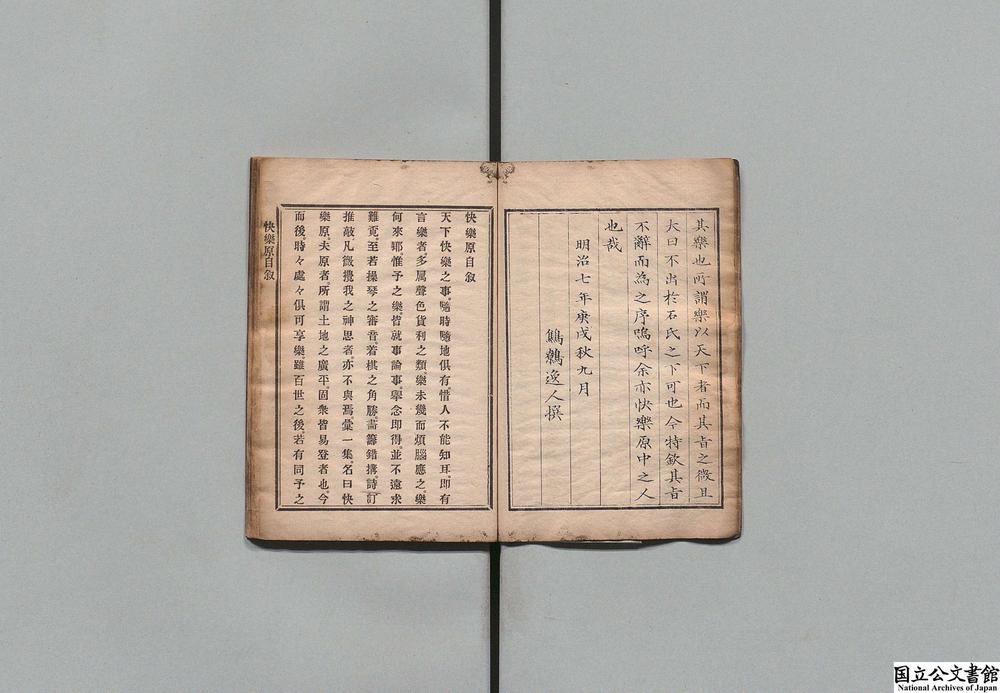 其樂也所謂樂以天下者而其旨之微且
大曰不出於石氏之下可也今特欽其旨
不辭而為之序嗚呼余亦快樂原中之人
也哉
明治七年庚戌秋九月
鷦鷯逸人撰
快樂原自叙
天下快樂之事。隨時隨地俱有。惜人不能知耳。卽有
言樂者。多属聲色貨利之類。樂未幾而煩腦應之。樂
何來耶。惟予之樂。皆就事論事。擧念即得。並不遠求
難覓。至若操琴之審音。若棋之角勝。籌錯搆。詩訂
推敲。凡微攪我之神思者。亦不與焉。彙一集。名曰快
樂原。夫原者。所謂土地之廣平。固衆皆易登者也。今
而後。時々處々俱可享樂。雖百世之後。若有同予之
快樂原自叙
国立公文書館
National Archives of Japan